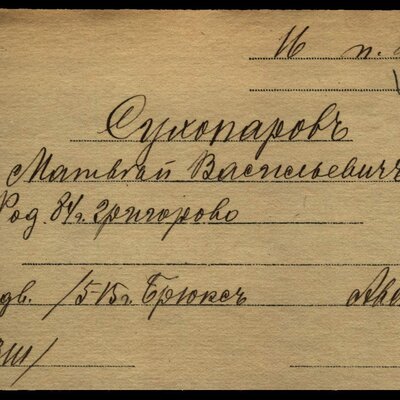 16 п.
Сухопаровъ
Матвѣй Васильевичъ
Род. 84 г. Григорово
/5-15 г. Брюксъ